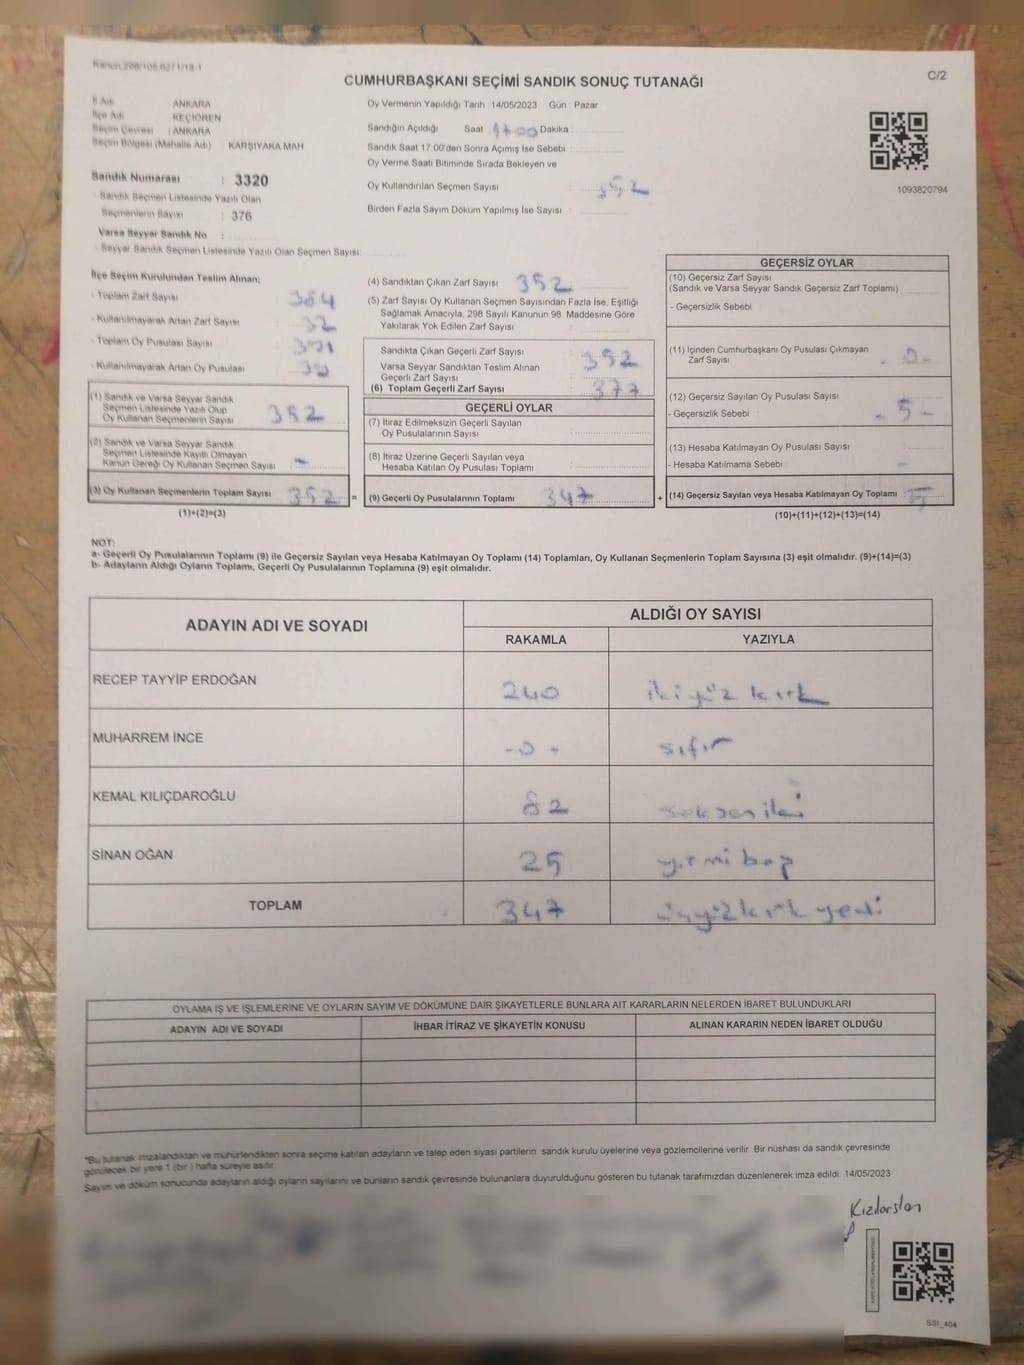 Kanun:298/105-6271/18-1
C/2
CUMHURBAŞKANI SEÇİMİ SANDIK SONUÇ TUTANAĞI
İl Adı : ANKARA
İlçe Adı : KEÇİÖREN
Seçim Çevresi : ANKARA
Seçim Bölgesi (Mahalle Adı) KARŞIYAKA MAH
Sandık Numarası : 3320
- Sandık Seçmen Listesinde Yazılı Olan
Seçmenlerin Sayısı : 376
Varsa Seyyar Sandık No :
- Seyyar Sandık Seçmen Listesinde Yazılı Olan Seçmen Sayısı:
Oy Vermenin Yapıldığı Tarih : 14/05/2023 Gün : Pazar
Sandığın Açıldığı Saat 17:00 Dakika
Sandık Saat 17:00'den Sonra Açımış İse Sebebi :
Oy Verme Saati Bitiminde Sırada Bekleyen ve
Oy Kullandırılan Seçmen Sayısı : 352
Birden Fazla Sayım Döküm Yapılmış İse Sayısı :
1093820794
İlçe Seçim Kurulundan Teslim Alınan;
- Toplam Zarf Sayısı : 384
- Kullanılmayarak Artan Zarf Sayısı : 32
- Toplam Oy Pusulası Sayısı :
- Kullanılmayarak Artan Oy Pusulası :
(1) Sandık ve Varsa Seyyar Sandık
Seçmen Listesinde Yazılı Olup
Oy Kullanan Seçmenlerin Sayısı : 352
(2) Sandık ve Varsa Seyyar Sandık
Seçmen Listesinde Kayıtlı Olmayan
Kanun Gereği Oy Kullanan Seçmen Sayısı : -
(3) Oy Kullanan Seçmenlerin Toplam Sayısı : 352
(1)+(2)=(3)
(4) Sandıktan Çıkan Zarf Sayısı : 352
(5) Zarf Sayısı Oy Kullanan Seçmen Sayısından Fazla İse, Eşitliği
Sağlamak Amacıyla, 298 Sayılı Kanunun 98. Maddesine Göre
Yakılarak Yok Edilen Zarf Sayısı :
Sandıkta Çıkan Geçerli Zarf Sayısı : 352
Varsa Seyyar Sandıktan Teslim Alınan
Geçerli Zarf Sayısı :
(6) Toplam Geçerli Zarf Sayısı : 377
GEÇERLİ OYLAR
(7) İtiraz Edilmeksizin Geçerli Sayılan
Oy Pusulalarının Sayısı :
(8) İtiraz Üzerine Geçerli Sayılan veya
Hesaba Katılan Oy Pusulası Toplamı :
= (9) Geçerli Oy Pusulalarının Toplamı : 347 +
GEÇERSİZ OYLAR
(10) Geçersiz Zarf Sayısı
(Sandık ve Varsa Seyyar Sandık Geçersiz Zarf Toplamı) :
- Geçersizlik Sebebi :
(11) İçinden Cumhurbaşkanı Oy Pusulası Çıkmayan
Zarf Sayısı : - 0 -
(12) Geçersiz Sayılan Oy Pusulası Sayısı :
- Geçersizlik Sebebi : - 5 -
(13) Hesaba Katılmayan Oy Pusulası Sayısı :
- Hesaba Katılmama Sebebi : -
(14) Geçersiz Sayılan veya Hesaba Katılmayan Oy Toplamı : 5
(10)+(11)+(12)+(13)=(14)
NOT:
a- Geçerli Oy Pusulalarının Toplamı (9) ile Geçersiz Sayılan veya Hesaba Katılmayan Oy Toplamı (14) Toplamları, Oy Kullanan Seçmenlerin Toplam Sayısına (3) eşit olmalıdır. (9)+(14)=(3)
b- Adayların Aldığı Oyların Toplamı, Geçerli Oy Pusulalarının Toplamına (9) eşit olmalıdır.
ADAYIN ADI VE SOYADI
ALDIĞI OY SAYISI
RAKAMLA YAZIYLA
RECEP TAYYİP ERDOĞAN 240 iki yüz kırk
MUHARREM İNCE -0- sıfır
KEMAL KILIÇDAROĞLU 82 seksen iki
SİNAN OĞAN 25 yirmi beş
TOPLAM 347 üçyüz kırk yedi
OYLAMA İŞ VE İŞLEMLERİNE VE OYLARIN SAYIM VE DÖKÜMÜNE DAİR ŞİKAYETLERLE BUNLARA AİT KARARLARIN NELERDEN İBARET BULUNDUKLARI
ADAYIN ADI VE SOYADI İHBAR İTİRAZ VE ŞİKAYETİN KONUSU ALINAN KARARIN NEDEN İBARET OLDUĞU
*Bu tutanak imzalandıktan ve mühürlendikten sonra seçime katılan adayların ve talep eden siyasi partilerin sandık kurulu üyelerine veya gözlemcilerine verilir. Bir nüshası da sandık çevresinde
görülecek bir yere 1 (bir ) hafta süreyle asılır.
Sayım ve döküm sonucunda adayların aldığı oyların sayılarını ve bunların sandık çevresinde bulunanlara duyurulduğunu gösteren bu tutanak tarafımızdan düzenlenerek imza edildi. 14/05/2023
Kızılarslan
SSI_404